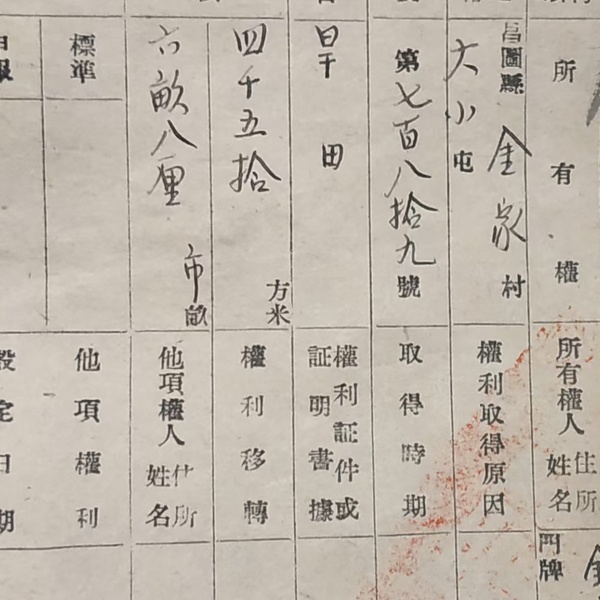 所有權
昌圖縣金家村
大小屯
第七百八拾九號
旱田
四千五拾方米
六畝八厘市畝
標準
所有權人住所姓名
權利取得原因
取得時期
權利証件或証明書據
權利移轉
他項權人住所姓名
他項權利
設定日期
門牌